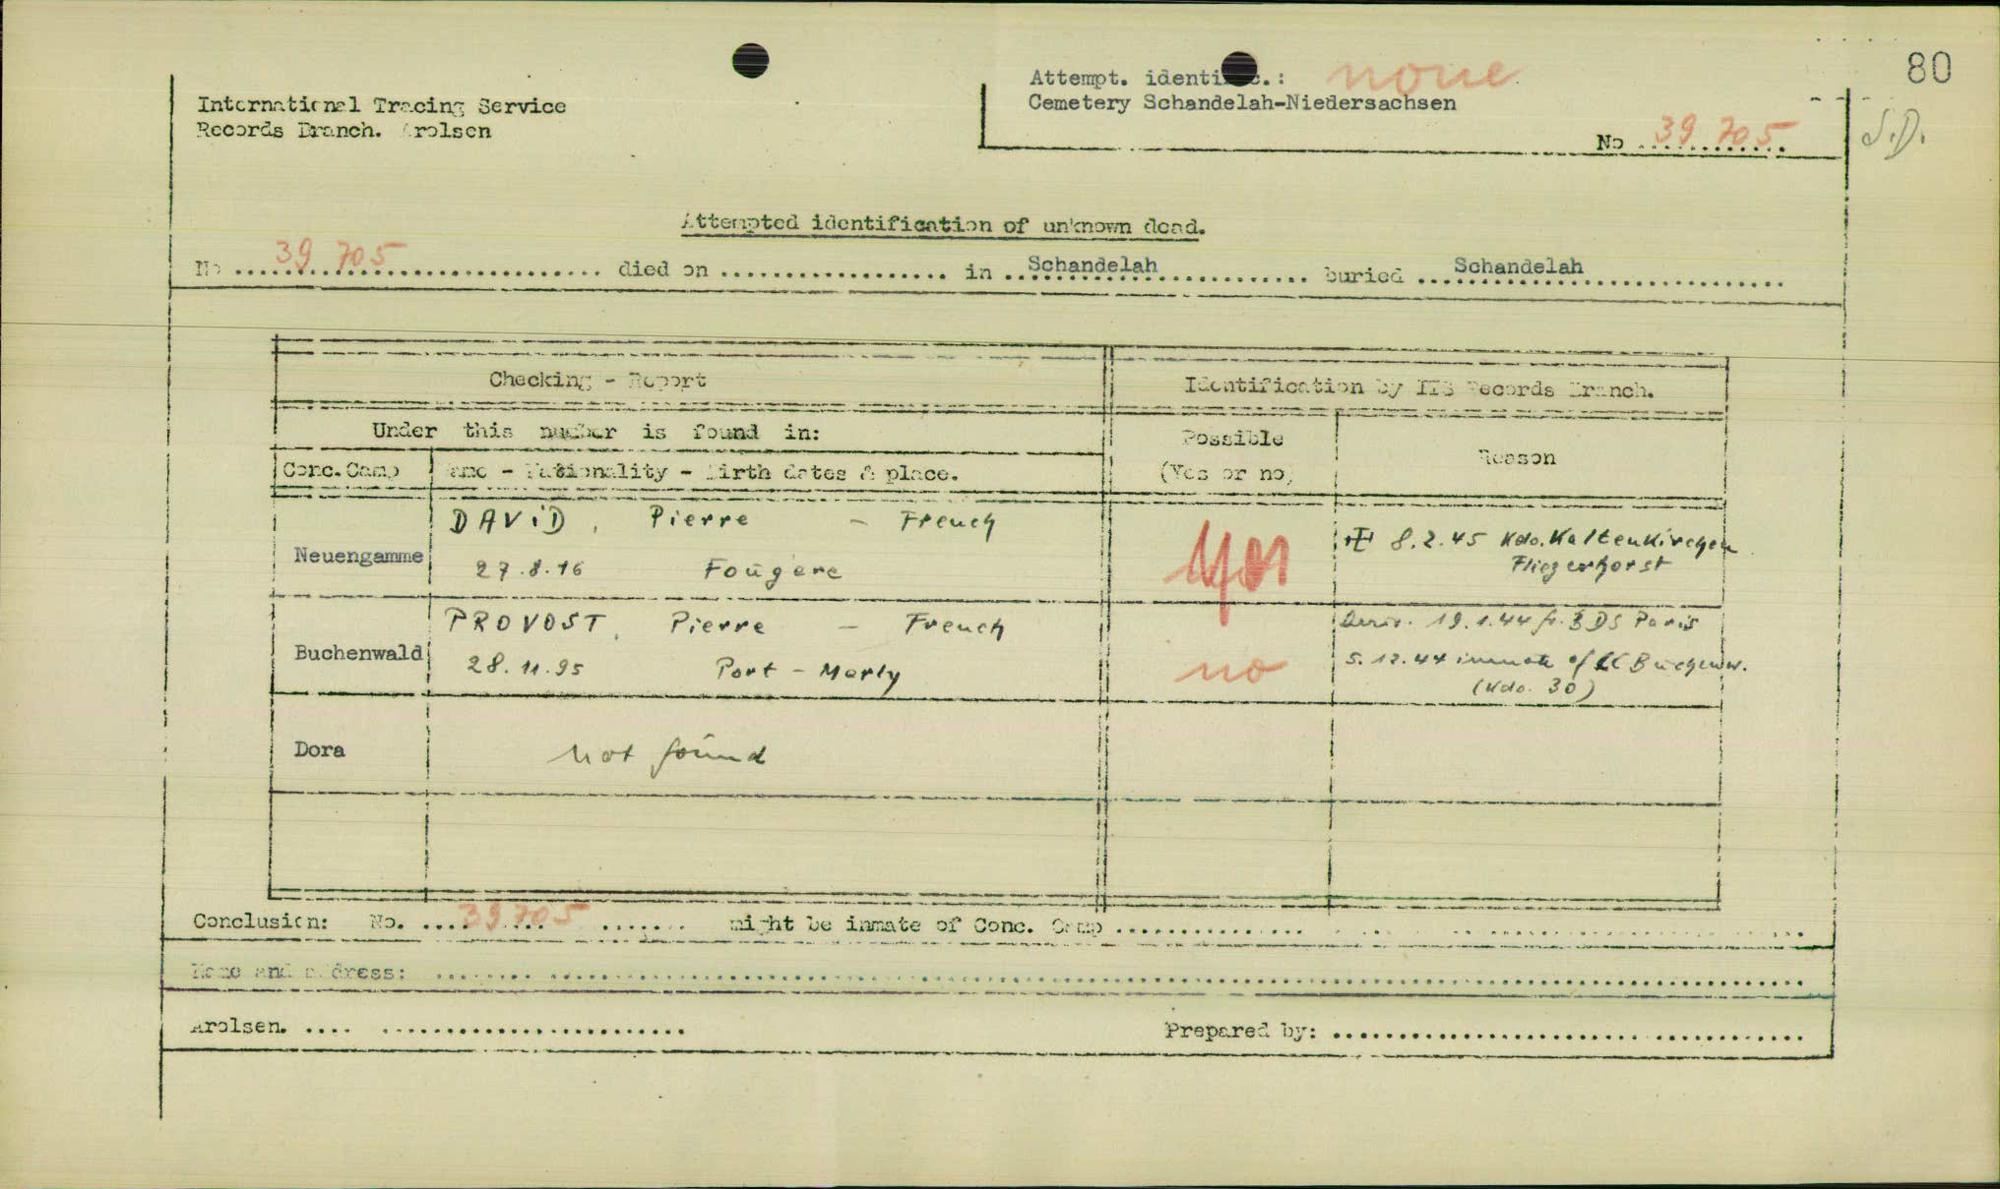 80
Attempt. identific.: none
International Tracing Service
Cemetery Schandelah-Niedersachsen
Records Branch. Arolsen
No 39 705
S.D.
Attempted identification of unknown dead.
No 39 705 died on in Schandelah buried Schandelah
Checking - Report
Identification by ITS Records Branch.
Under this number is found in:
Possible
(Yes or no)
Reason
Conc. Camp Name - Nationality - Birth dates & place.
DAViD, Pierre - French
Neuengamme
27.8.16 Fougere
8.2.45 Kdo. Kaltenkirchen
Fliegerhorst
PROVOST, Pierre - French
19.1.44 fr. BDS Paris
Buchenwald
28.11.95 Port - Marly
no
5.12.44 inmate of CC Buchenw.
(Kdo. 30)
Dora not found
Conclusion: No. 39705 might be inmate of Conc. Camp
Name and address:
Arolsen.
Prepared by: